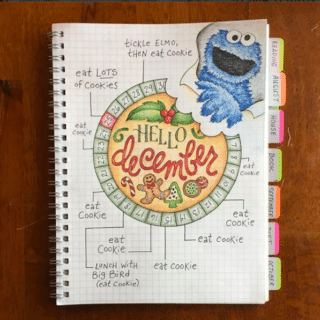 tickle ELMO,
then eat cookie
eat LOTS
of cookies
eat
cookie
HELLO
december
eat
cookie
eat
cookie
eat
cookie
eat
cookie
eat cookie
LUNCH WITH
Big Bird
(eat cookie)
eat cookie
READING
AUGUST
HOUSE
BOOK
SEPTEMBER
OCTOBER